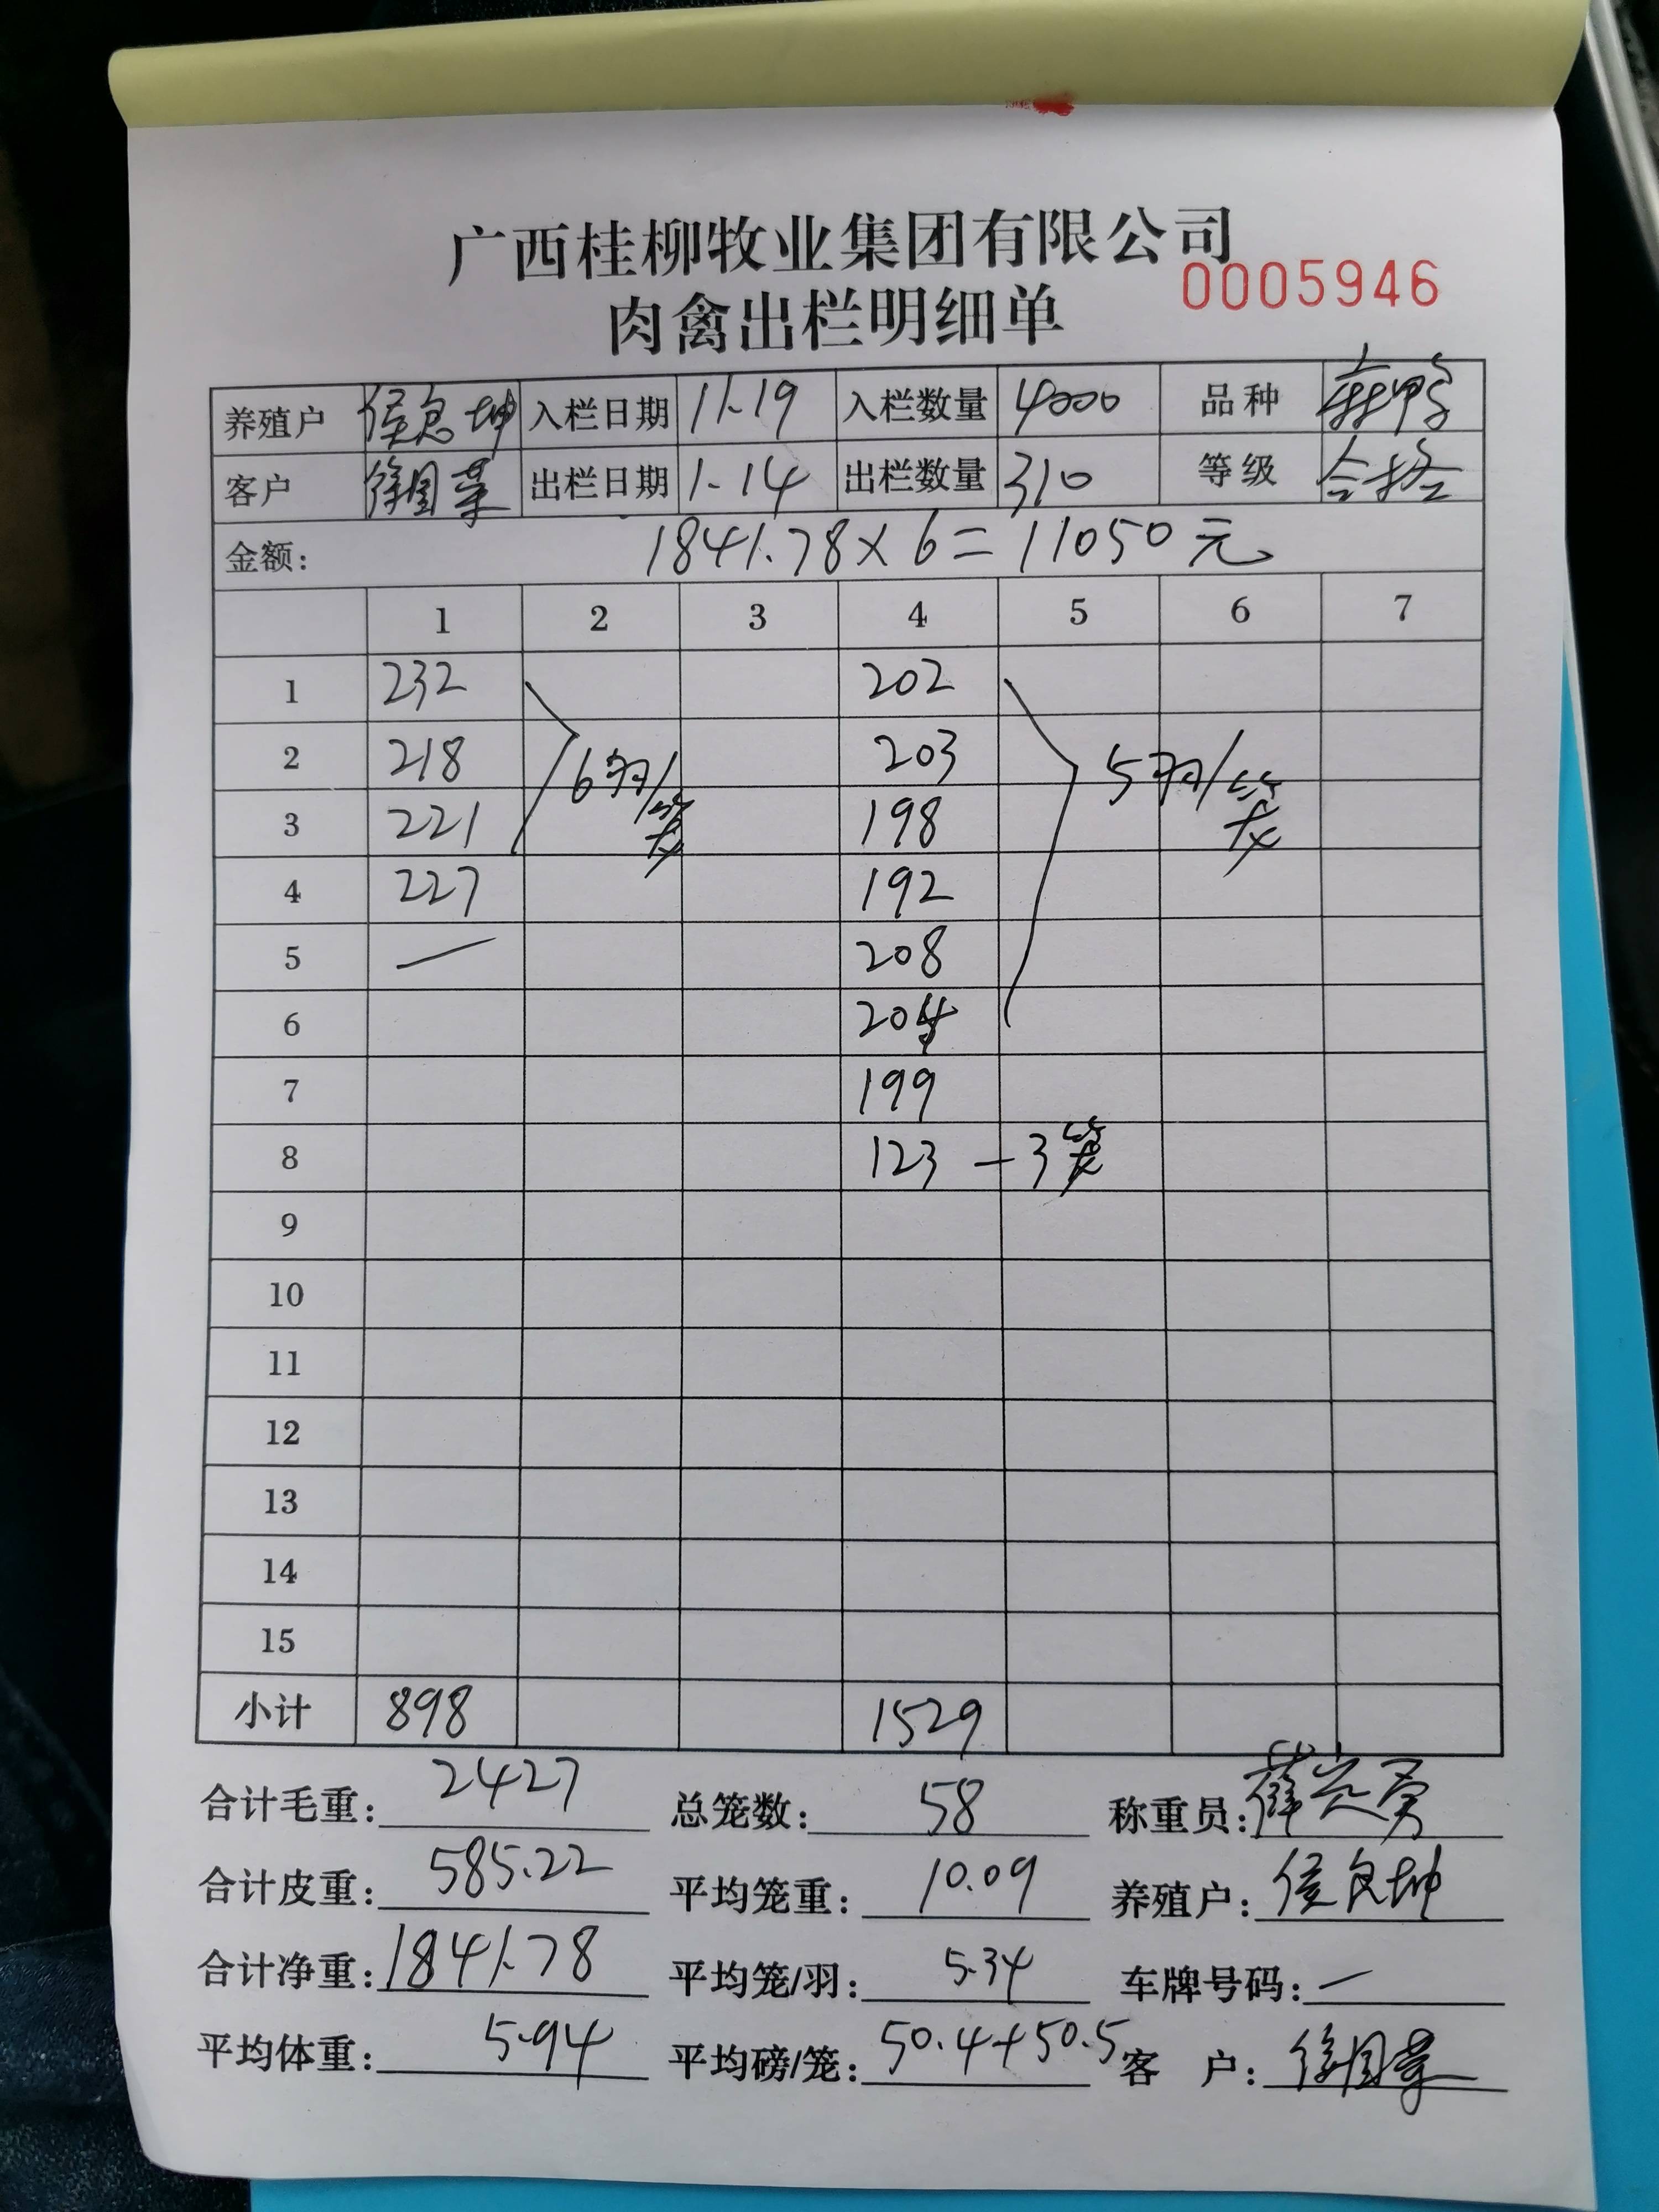 广西桂柳牧业集团有限公司
0005946
肉禽出栏明细单
养殖户 侯良坤 入栏日期 11.19 入栏数量 4000 品种 麻鸭
客户 徐国荣 出栏日期 1.14 出栏数量 310 等级 合格
金额: 1841.78×6=11050元
1 2 3 4 5 6 7
1 232 202
2 218 6羽/笼 203 5羽/笼
3 221 198
4 227 192
5 — 208
6 204
7 199
8 123 —3笼
9
10
11
12
13
14
15
小计 898 1529
合计毛重: 2427 总笼数: 58 称重员: 薛
合计皮重: 585.22 平均笼重: 10.09 养殖户: 侯良坤
合计净重: 1841.78 平均笼/羽: 5.34 车牌号码: —
平均体重: 5.94 平均磅/笼: 50.4+50.5 客 户: 徐国荣